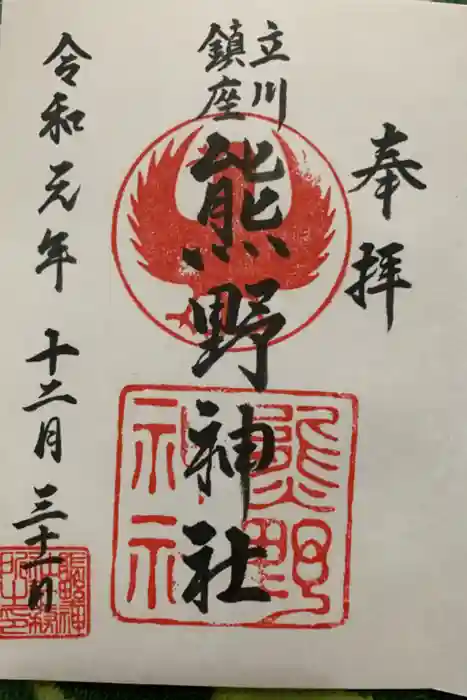 奉拝
立川
鎮座
熊野神社
熊野
神社
令和元年 十二月 三十一日